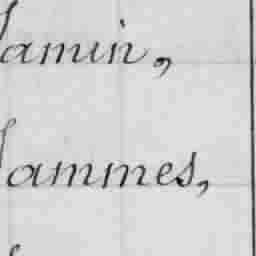 amin,
ammes,